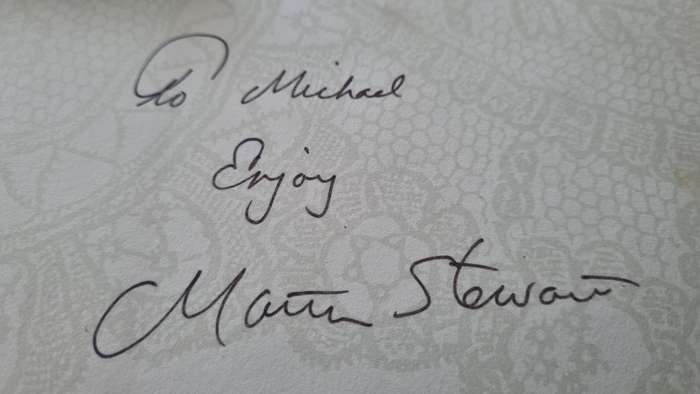 To Michael
Enjoy
Stewart